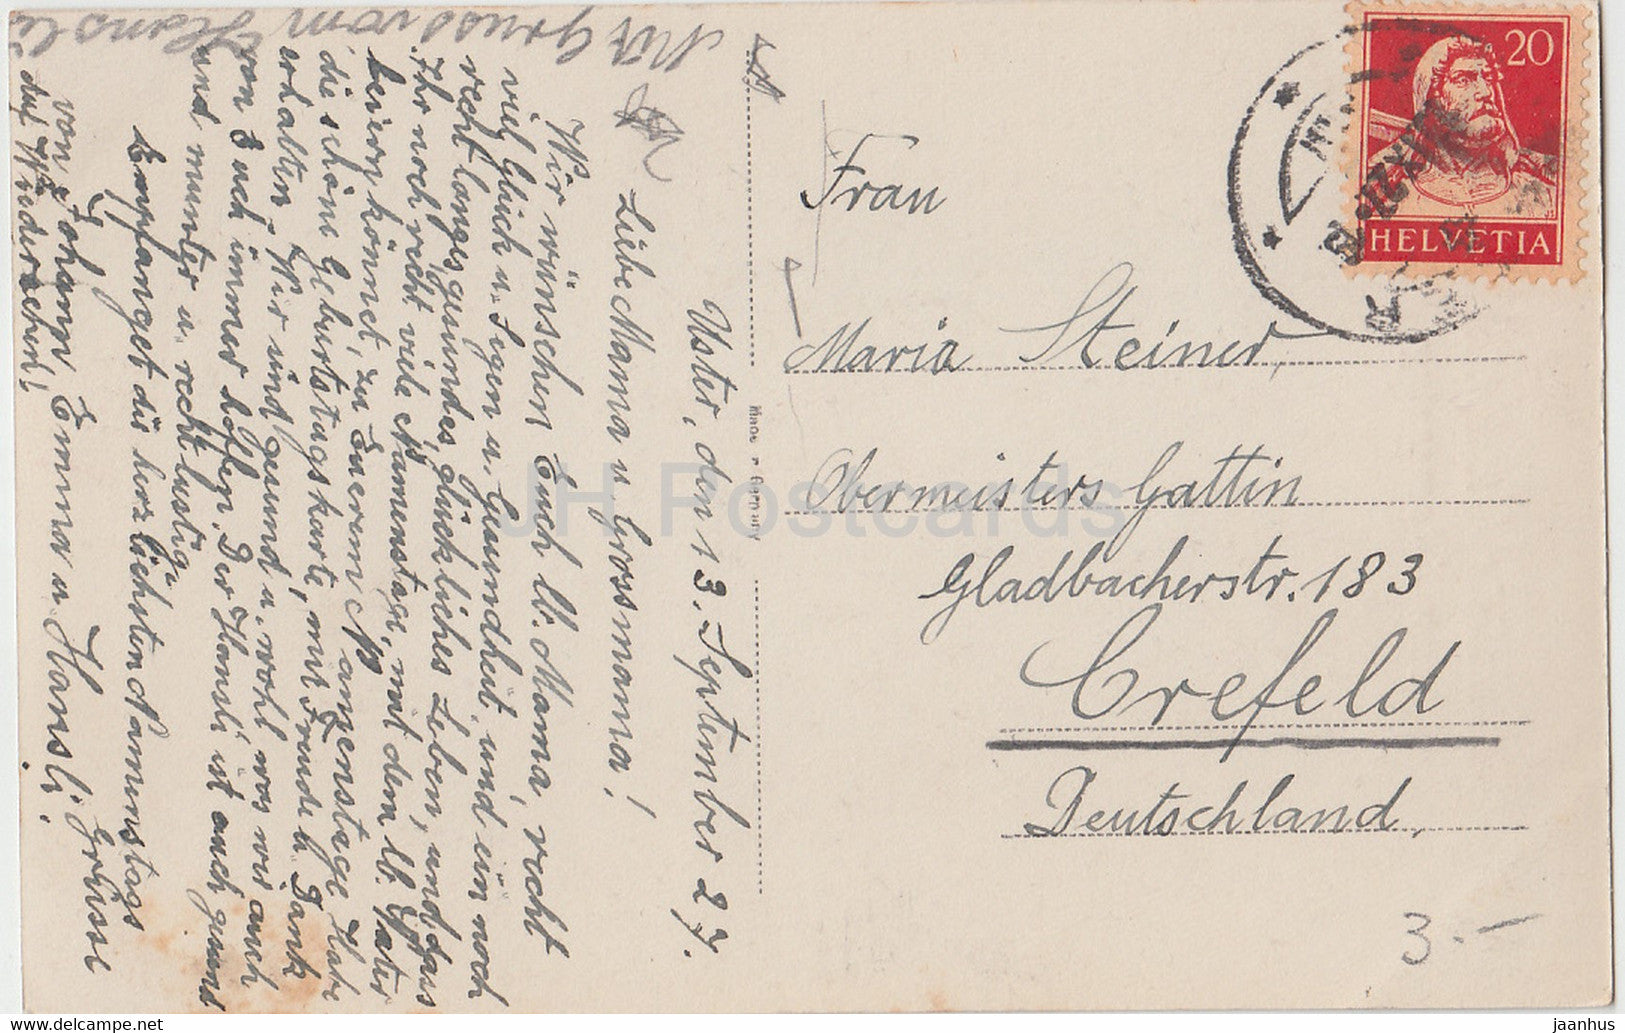 Mit Gruss vom Hansli
Uster, den 13. September 27.
Liebe Mama u Grosmama!
Wir wünschen Euch lb. Mama, recht
viel Glück u. Segen u. Gesundheit, und ein noch
recht langes gesundes, glückliches Leben, und das
Ihr noch recht viele Namenstage, mit dem lb. Vater
feiern könnet, zu Euerem Namenstage. Habe
die schöne Geburtstagskarte, mit Freude u. Dank
erhalten. Wir sind gesund u. wohl was wir auch
von Euch immer hoffen. Der Hansli ist auch gesund
und munter u. recht lustig.
Empfanget die herzlichsten Namenstags
Grüsse
von Johann, Emma u Hansli,
Auf Wiedersehen!
Made in Germany
20
HELVETIA
Frau
Maria Steiner,
Obermeisters Gattin
Gladbacherstr. 183
Crefeld
Deutschland,
3.-
JH Postcards
jaanhus
ehto.com